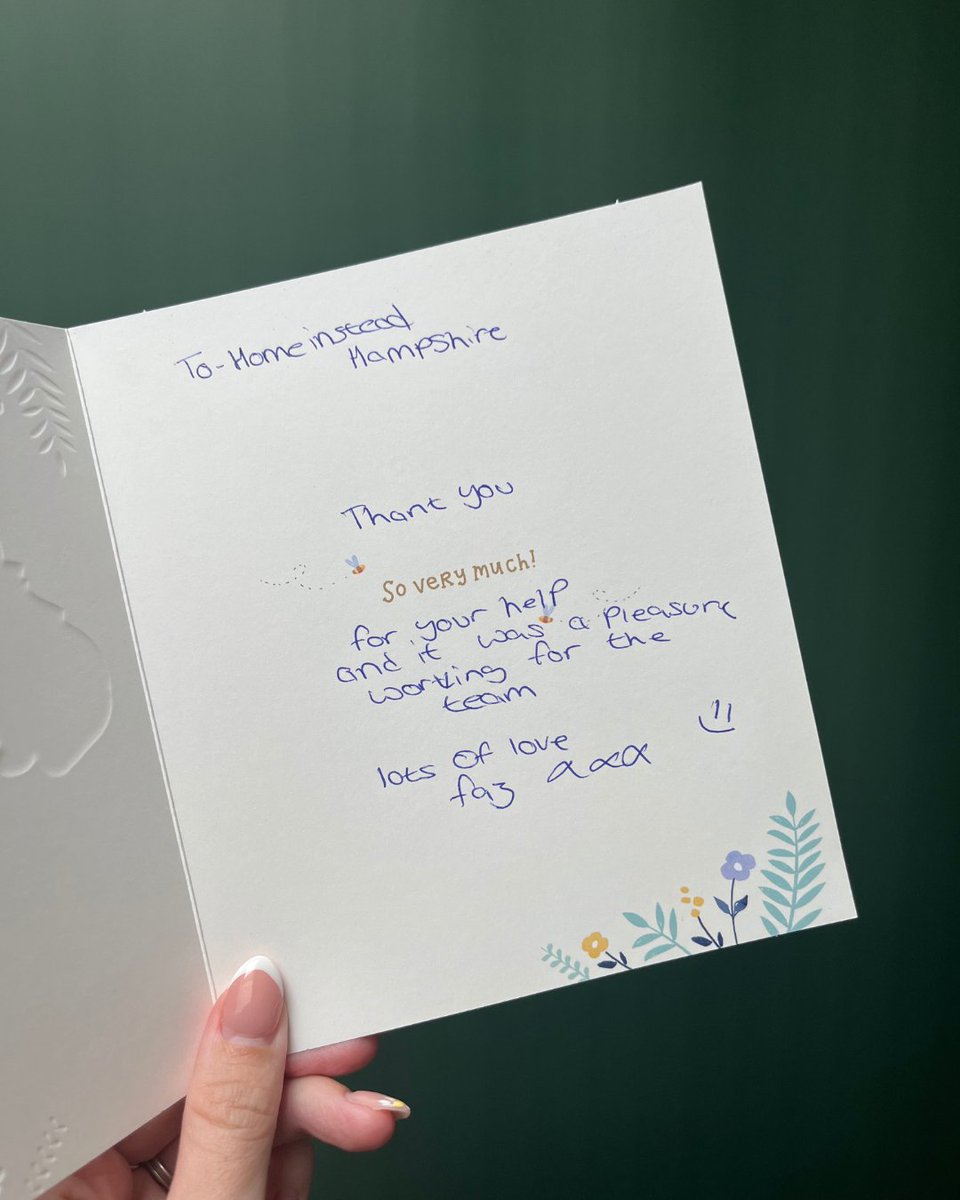 To-Homeinstead
Hampshire
Thank you
So very much!
for your help
and it was a pleasure
working for the
team
lots of love
faz xxx